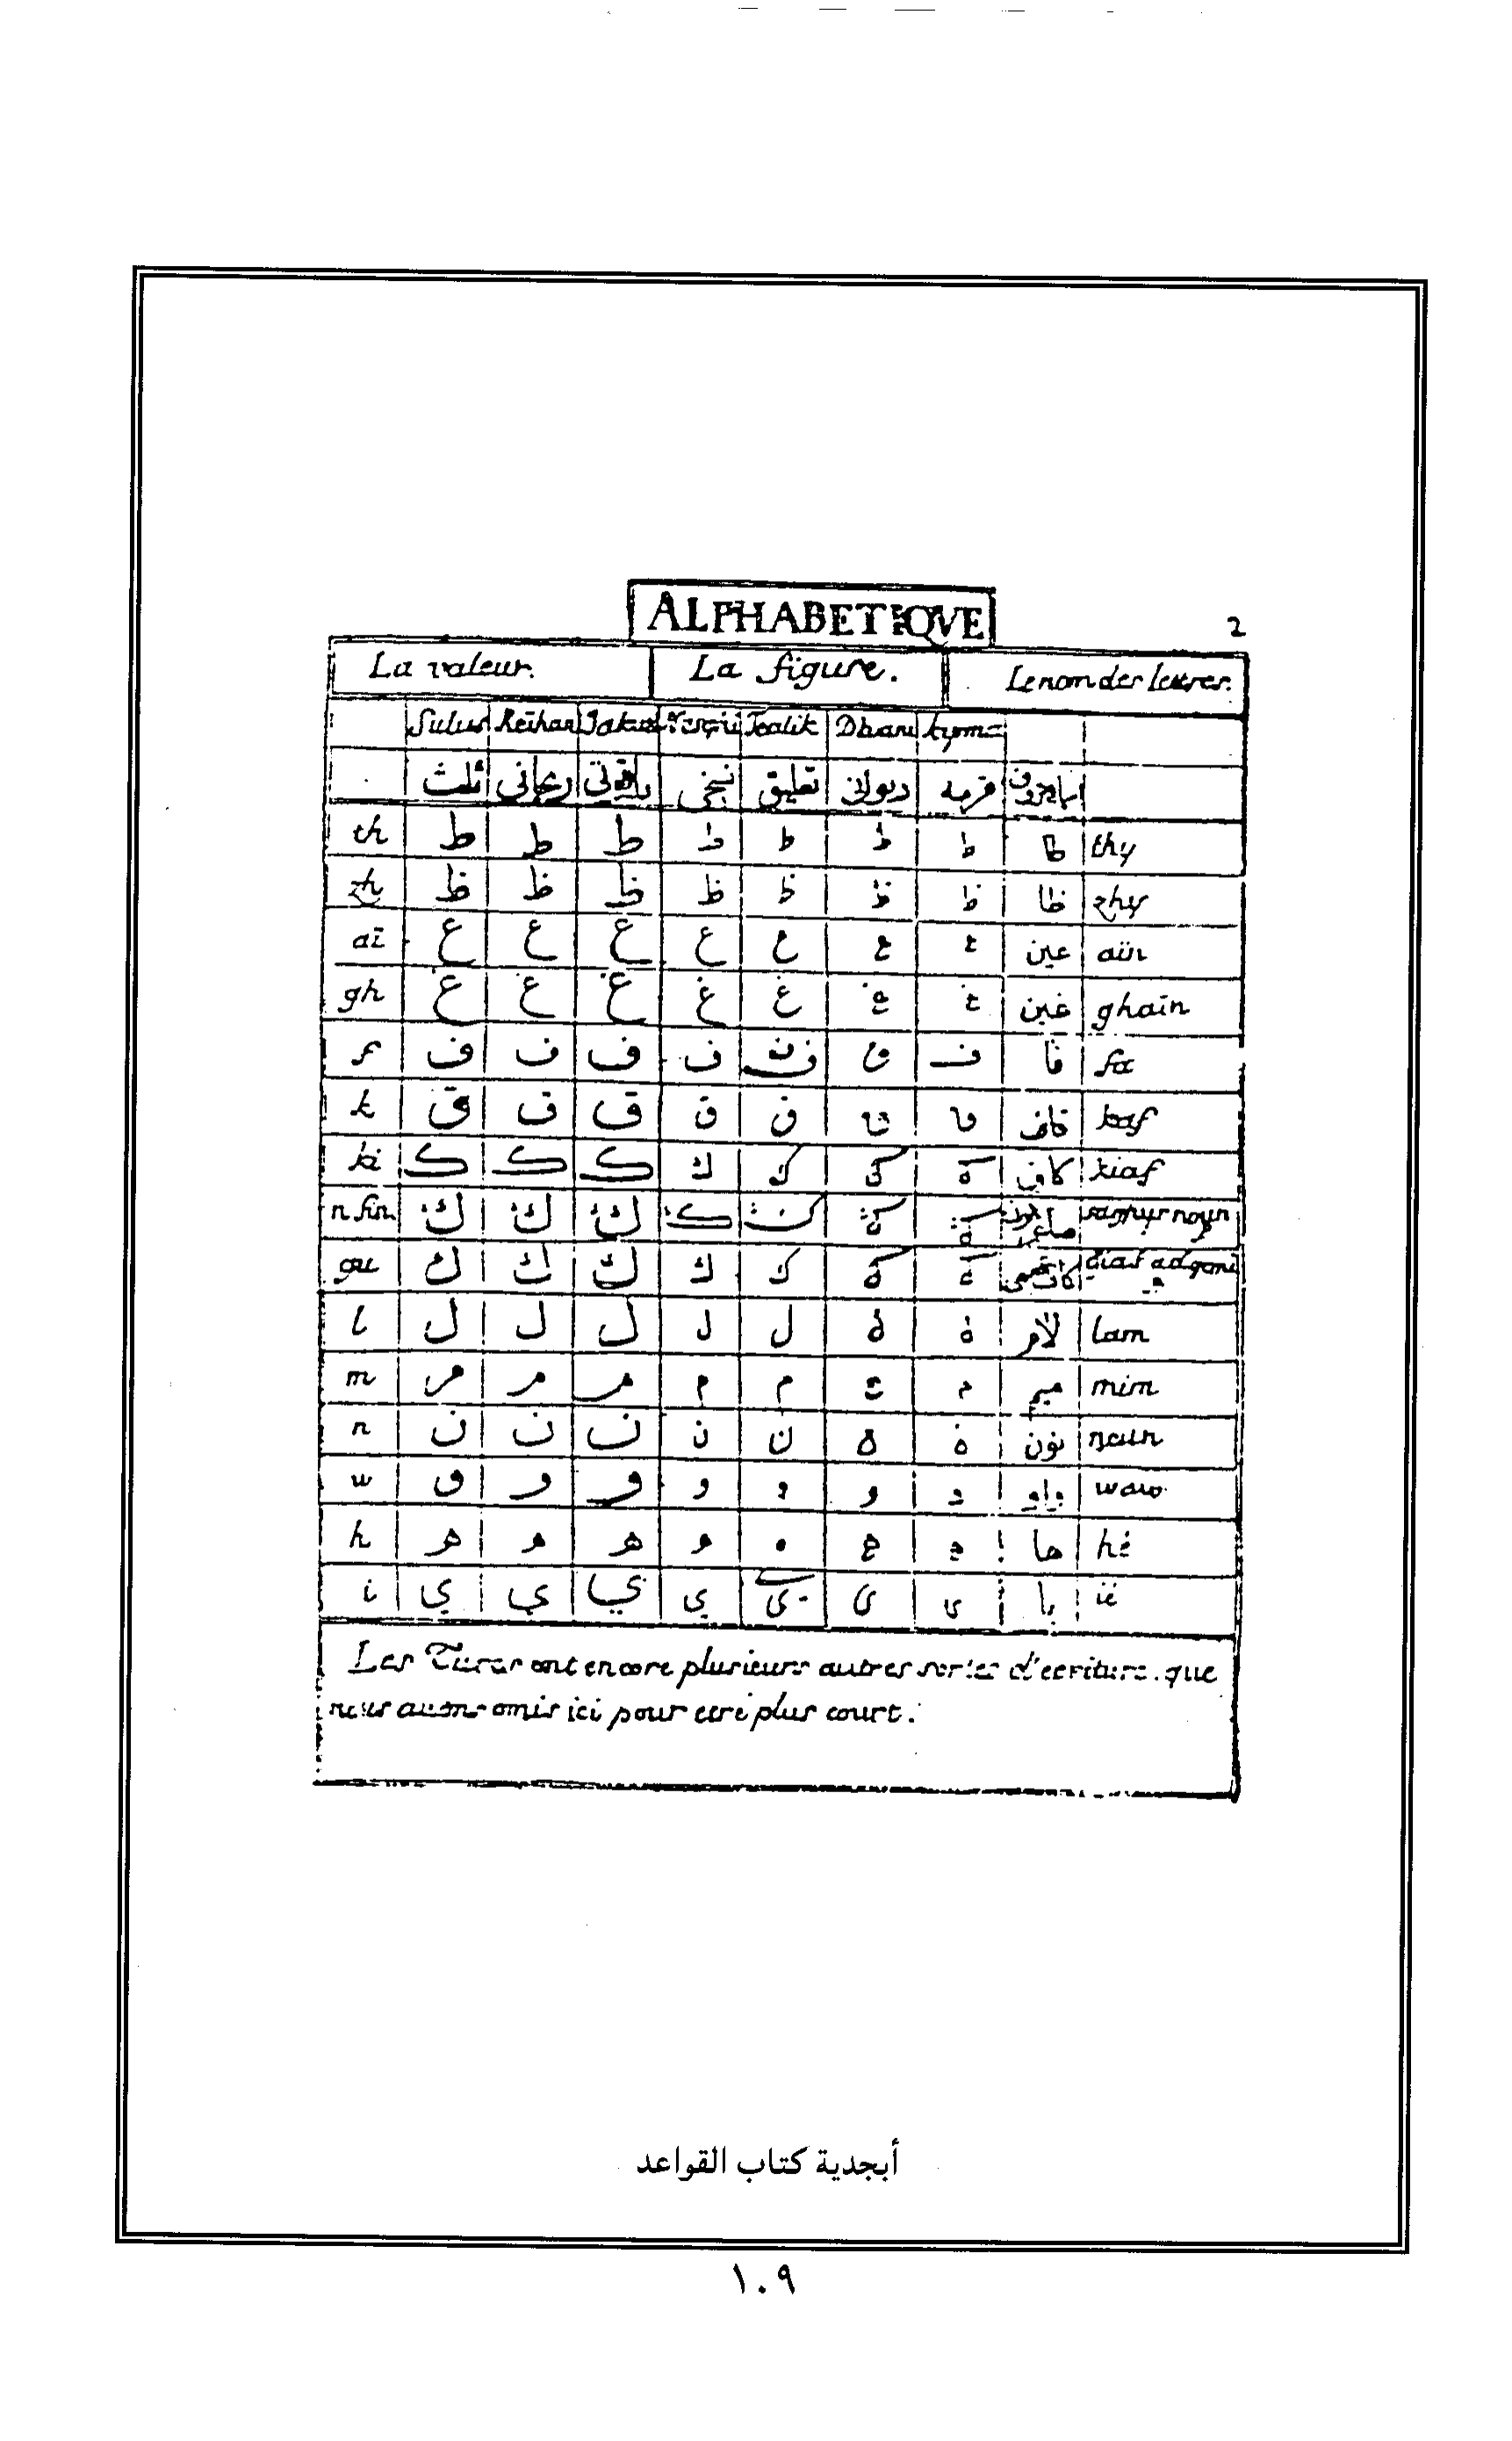 ALPHABETIQVE
2
La valeur. La figure. Le nom des lettres.
Sulus Reihan Tealik
ثلث ريحاني ياقوتي نسخي تعليق ديواني قرمه
th ط ط ط ط ط ط ط طا thy
zh ظ ظ ظ ظ ظ ظ ظ ظا zhy
aï ع ع ع ع ع ع ع عين aïn
gh غ غ غ غ غ غ غ غين ghaïn
f ف ف ف ف ف ف ف فا fa
k ق ق ق ق ق ق ق قاف kaf
ki ك ك ك ك ك ك ك كاف kiaf
n fin. saghyr noun
gu ك ك ك ك ك ك ك
l ل ل ل ل ل ل ل لام lam
m م م م م م م م ميم mim
n ن ن ن ن ن ن ن نون noun
w و و و و و و و واو waw
h ه ه ه ه ه ه ه ها hé
i ي ي ي ي ي ي ي يا ié
Les Turcs ont encore plusieurs autres sortes d'ecriture. que
nous auons omis ici pour etre plus court.
أبجدية كتاب القواعد
١٠٩